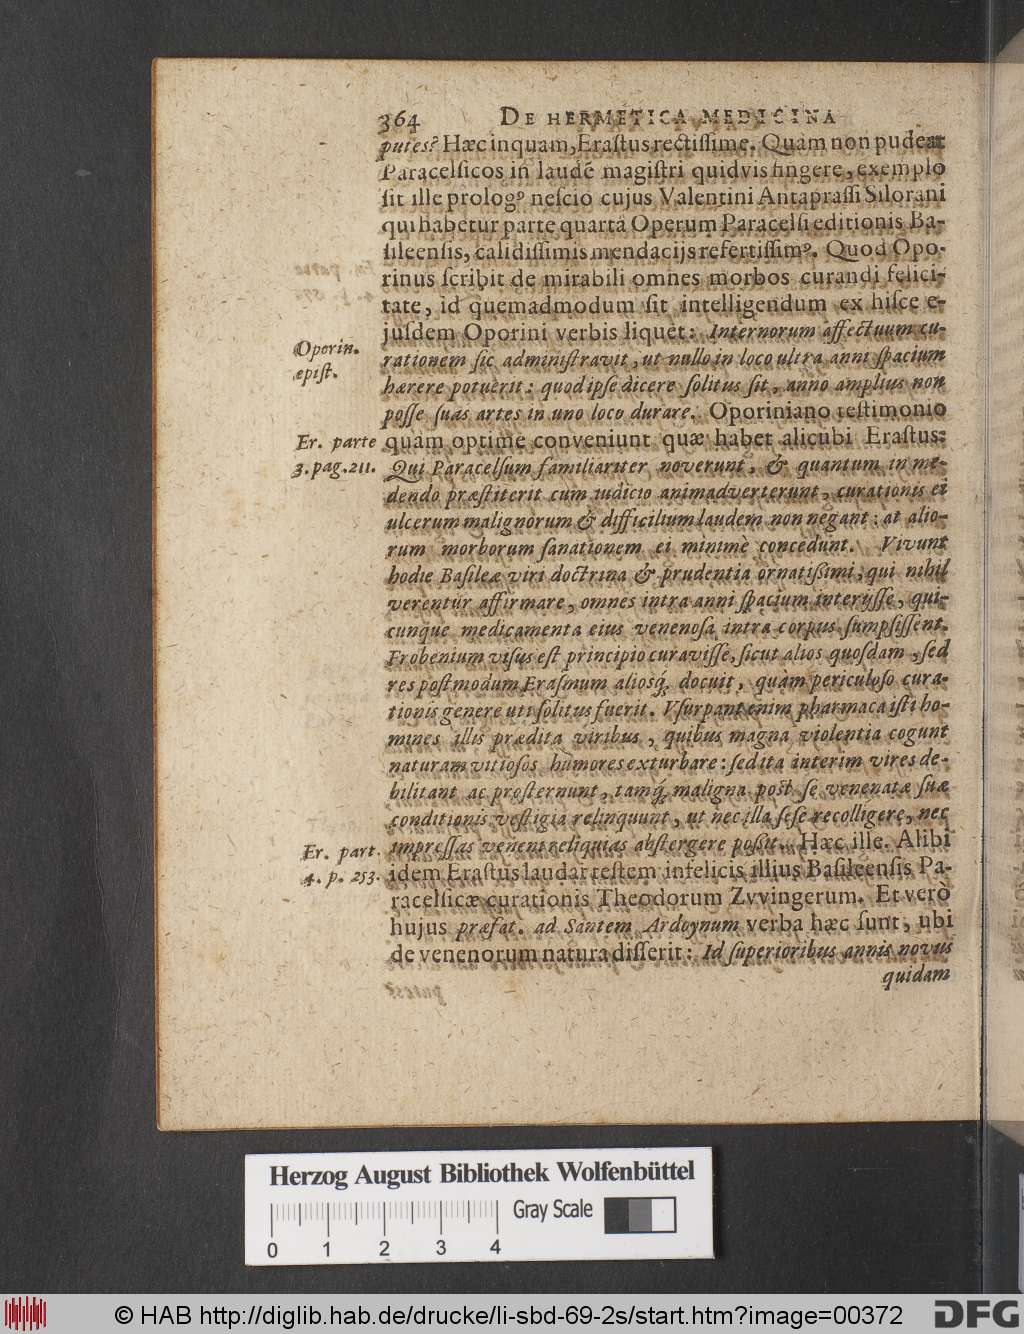 364 DE HERMETICA MEDICINA
putes? Hæc inquam, Eraſtus rectiſſime. Quàm non pudeat
Paracelſicos in laudẽ magiſtri quidvis fingere, exemplo
ſit ille prologꝰ neſcio cujus Valentini Antapraſſi Silorani
qui habetur parte quartâ Operum Paracelſi editionis Ba-
ſileenſis, calidiſſimis mendacijs refertiſſimꝰ. Quod Opo-
rinus ſcribit de mirabili omnes morbos curandi felici-
tate, id quemadmodum ſit intelligendum ex hiſce e-
juſdem Oporini verbis liquet: Internorum affectuum cu-
Oporin.
epiſt.
rationem ſic adminiſtravit, ut nullo in loco ultra anni ſpacium
hærere potuerit: quod ipſe dicere ſolitus ſit, anno amplius non
poſſe ſuas artes in uno loco durare. Oporiniano teſtimonio
Er. parte
3. pag. 211.
quàm optimè conveniunt quæ habet alicubi Eraſtus:
Qui Paracelſum familiariter noverunt, & quantum in me-
dendo præſtiterit cum iudicio animadverterunt, curationis ei
ulcerum malignorum & difficilium laudem non negant: at alio-
rum morborum ſanationem ei minimè concedunt. Vivunt
hodie Baſileæ viri doctrina & prudentia ornatißimi, qui nihil
verentur affirmare, omnes intra anni ſpacium interijſſe, qui-
cunque medicamenta eius venenoſa intra corpus ſumpſiſſent.
Frobenium viſus eſt principio curaviſſe, ſicut alios quoſdam, ſed
res poſtmodum Eraſmum alioſq́; docuit, quàm periculoſo cura-
tionis genere uti ſolitus fuerit. Vſurpant enim pharmaca iſti ho-
mines illis prædita viribus, quibus magna violentia cogunt
naturam vitioſos humores exturbare: ſed ita interim vires de-
bilitant ac proſternunt, tamq́; maligna poſt ſe venenatæ ſuæ
conditionis veſtigia relinquunt, ut nec illa ſeſe recolligere, nec
impreſſas veneni reliquias abſtergere poßit. Hæc ille. Alibi
Er. part.
4. p. 253.
idem Eraſtus laudat teſtem infelicis illius Baſileenſis Pa-
racelſicæ curationis Theodorum Zvvingerum. Et verò
hujus præfat. ad Santem Ardoynum verba hæc ſunt, ubi
de venenorum natura diſſerit: Id ſuperioribus annis novus
quidam
Herzog August Bibliothek Wolfenbüttel
Gray Scale
0 1 2 3 4
© HAB http://diglib.hab.de/drucke/li-sbd-69-2s/start.htm?image=00372
DFG